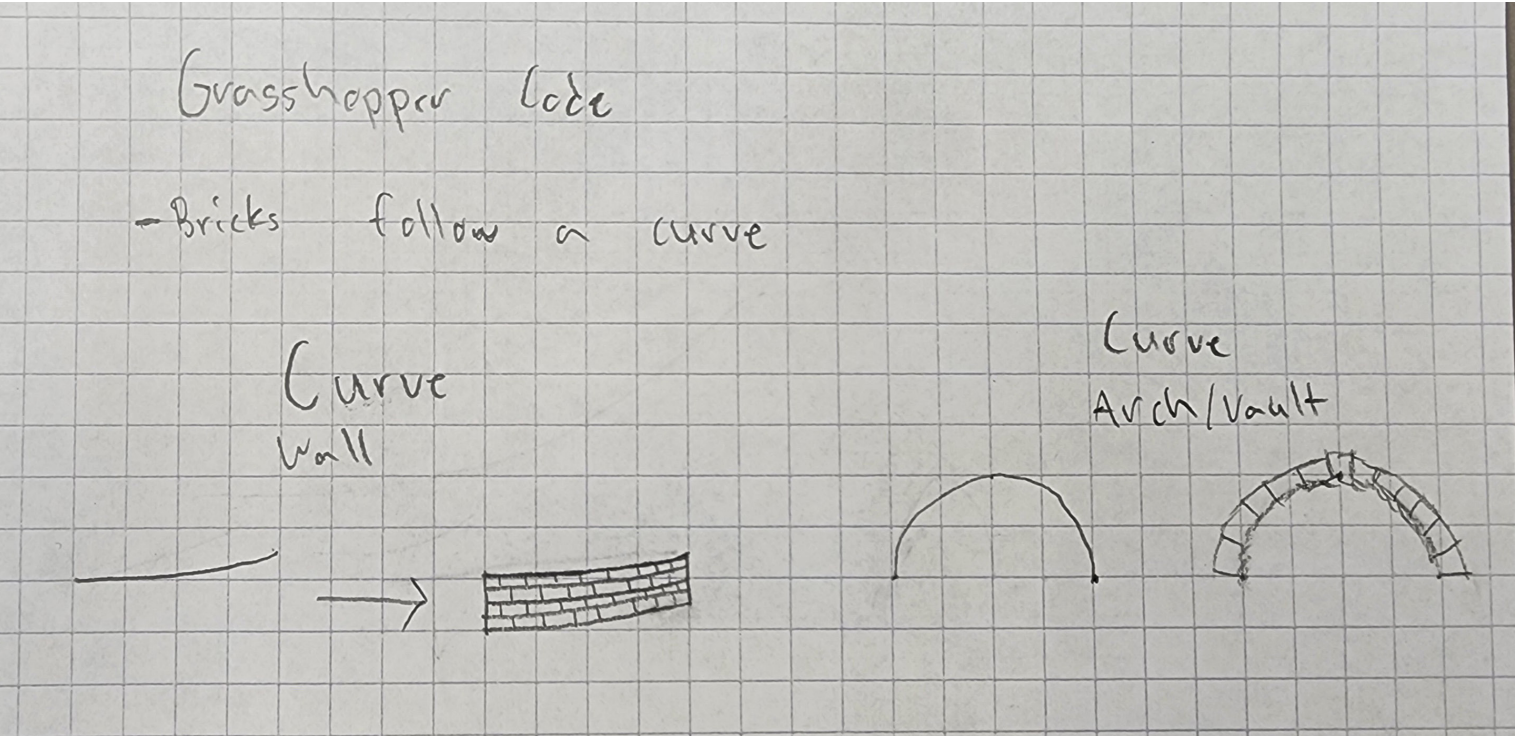 Grasshopper Code
- Bricks follow a curve
Curve
Wall
Curve
Arch/Vault